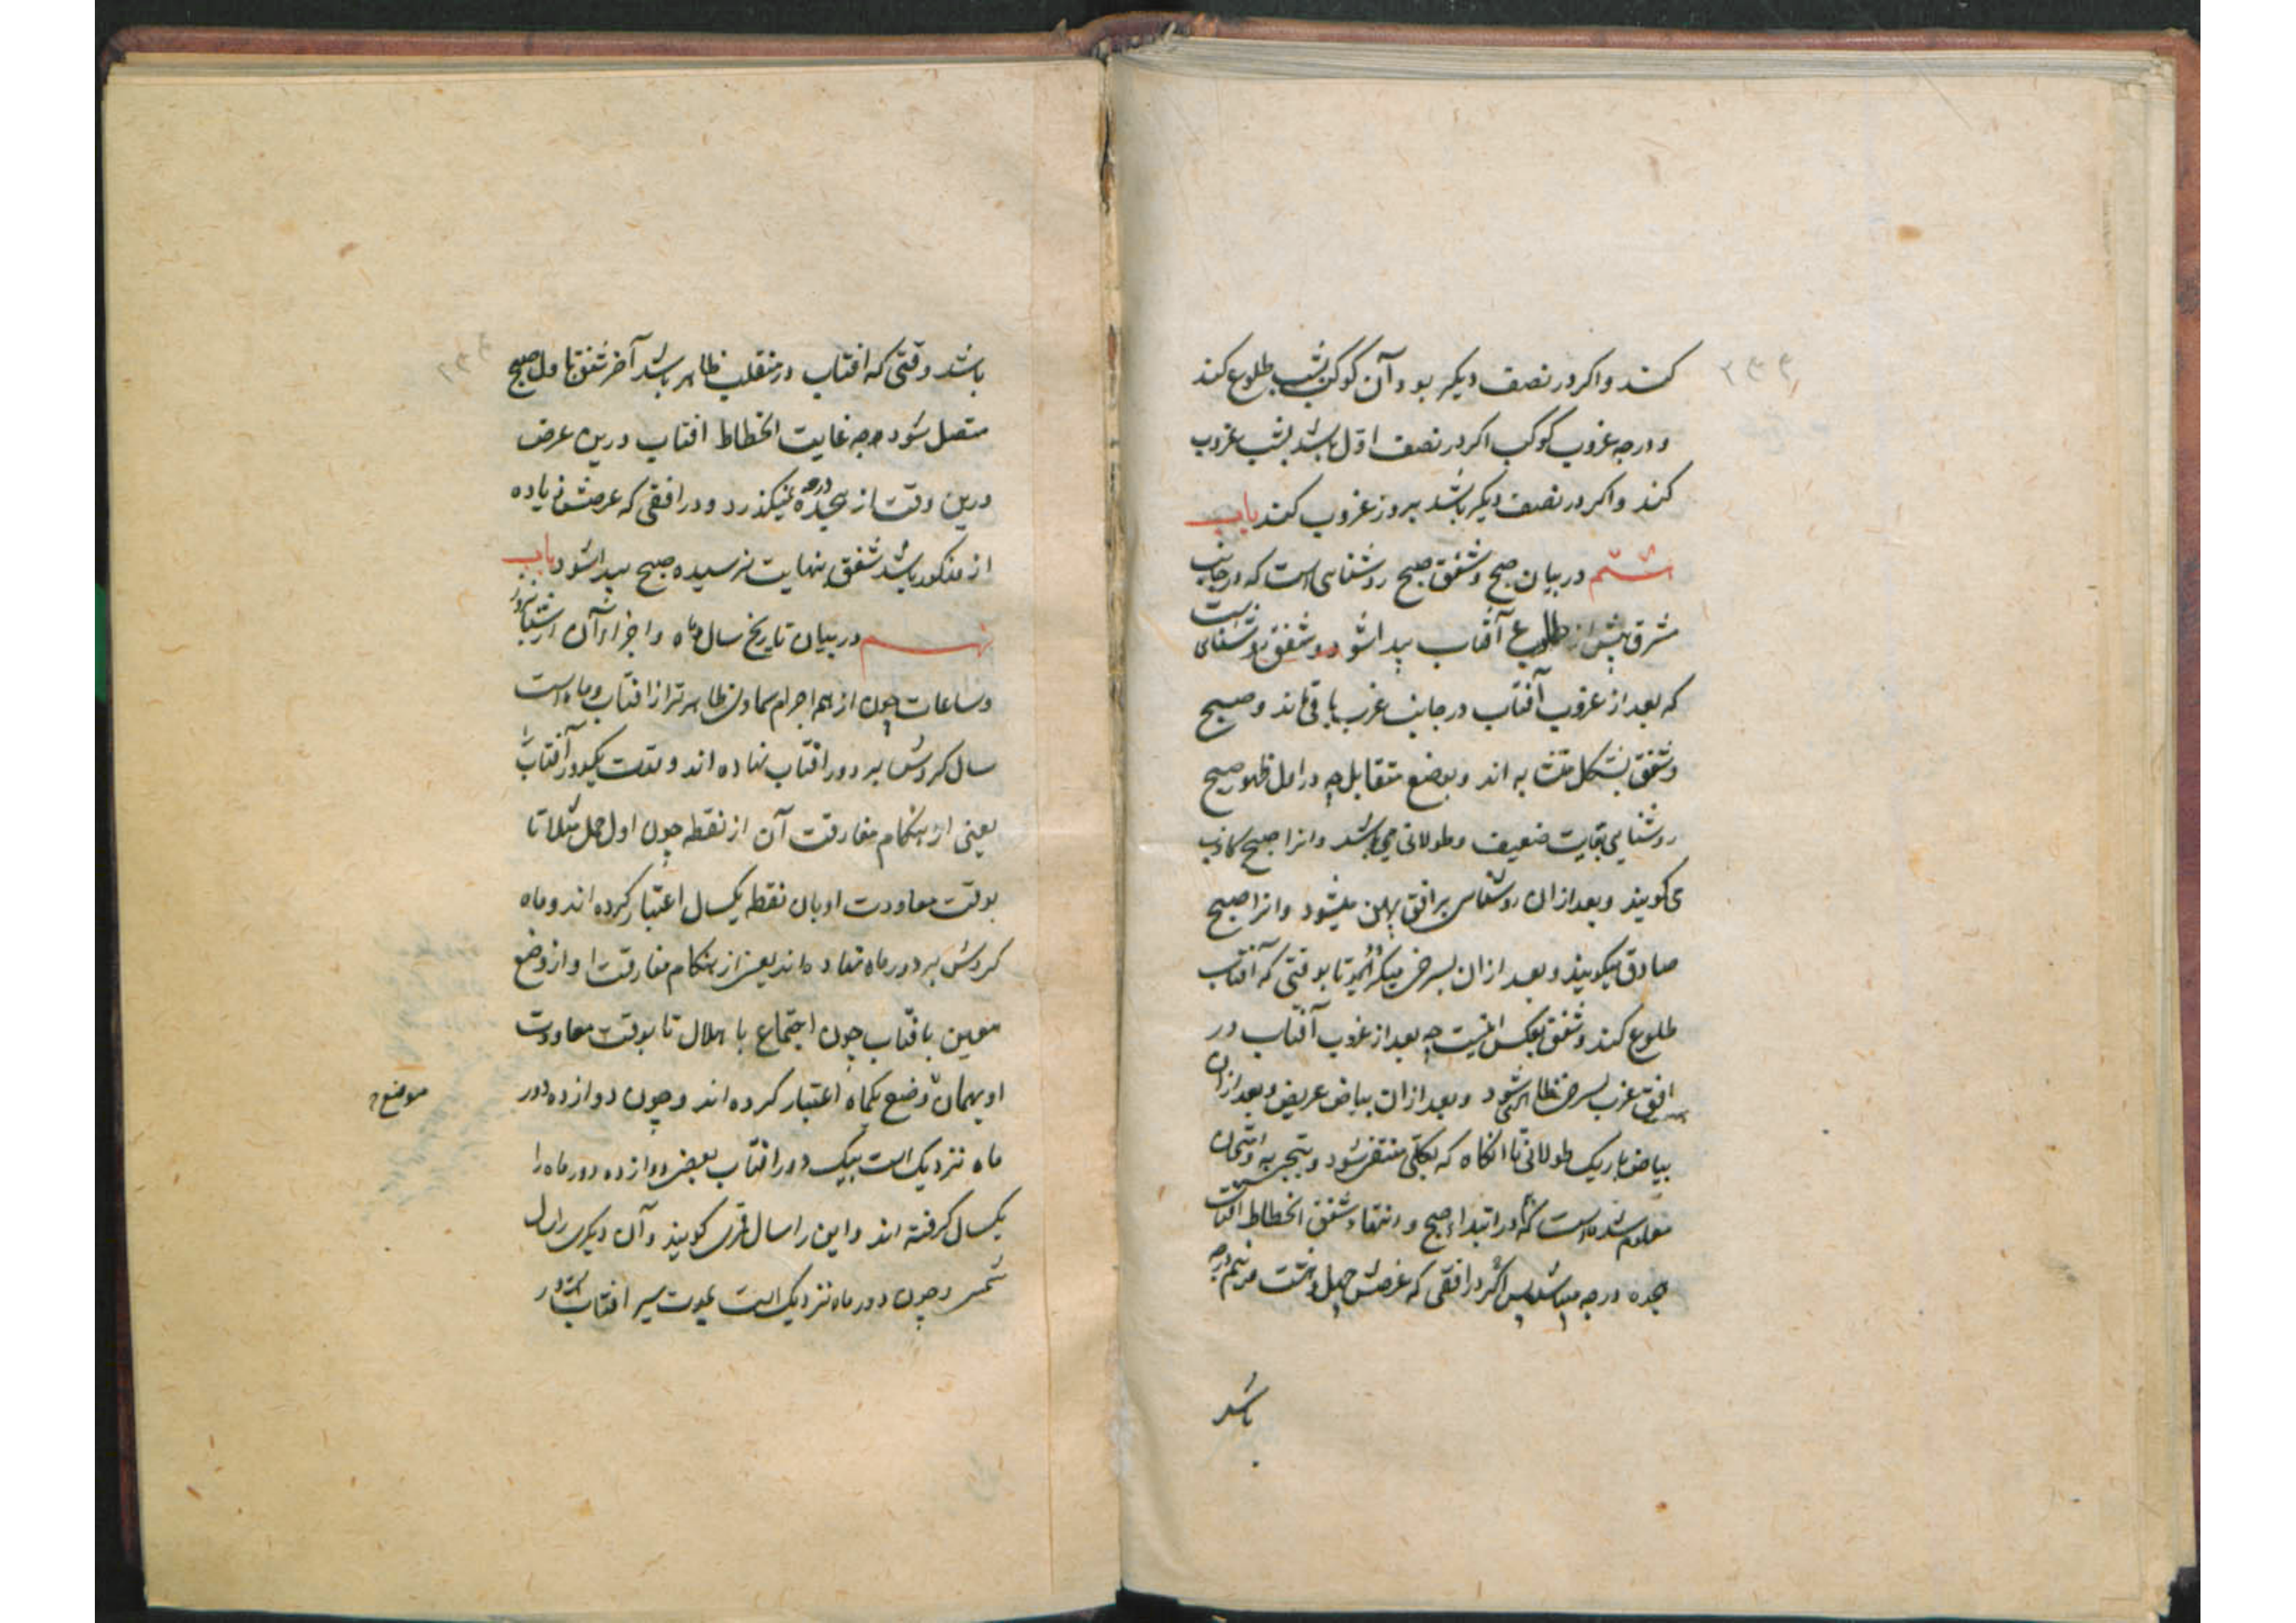 کنند و اکر در نصف دیکر بود آن کوکب بشب طلوع کند
و درجه غروب کوکب اکر در نصف اول باشد بشب غروب
کند و اکر در نصف دیکر باشد بروز غروب کند باب
هشتم در بیان صبح و شفق صبح روشنایی است که در جانب
مشرق پیش از طلوع آفتاب پیدا شود و شفق روشنایی است
که بعد از غروب آفتاب در جانب غرب باقی ماند و صبح
و شفق بشکل متشابه اند و بوضع متقابل چه در اول ظهور صبح
روشنایی بغایت ضعیف و طولانی می باشد و انرا صبح کاذب
می کویند و بعد از ان روشنایی بر افق پهن میشود و انرا صبح
صادق میکویند و بعد از ان بسرخی میکراید تا بوقتی که آفتاب
طلوع کند و شفق بعکس اینست چه بعد از غروب آفتاب در
افق غرب سرخی ظاهر شود و بعد از ان بیاض عریض و بعد از ان
بیاض باریک طولانی تا انکاه که بکلی منتفی شود و بتجربه و امتحان
معلوم شده است که در ابتداء صبح و انتهاء شفق انحطاط افتاب
هجده درجه میباشد پس اکر در افقی که عرضش چهل و هشت و نیم درجه
باشد
باشد وقتی که افتاب در منقلب ظاهر باشد آخر شفق با اول صبح
متصل شود چه غایت انحطاط افتاب درین عرض
درین وقت از هجده درجه نمیکذرد و در افقی که عرضش زیاده
از مذکور باشد شفق بنهایت نرسیده صبح پیدا شود باب
نهم در بیان تاریخ سال و ماه و اجزاء آن از شبانروز
و ساعات چون از همه اجرام سماوی ظاهرتر از افتاب و ماه است
سال کردش بر دور افتاب نهاده اند و مدت یکدور آفتاب
یعنی از هنکام مفارقت آن از نقطه چون اول حمل مثلا تا
بوقت معاودت او بان نقطه یکسال اعتبار کرده اند و ماه
کردش بر دور ماه نهاده اند یعنی از هنکام مفارقت او از وضع
معین بافتاب چون اجتماع یا هلال تا بوقت معاودت
او بهمان وضع یکماه اعتبار کرده اند و چون دوازده دور
موضع
ماه نزدیک است بیک دور افتاب بعضی دوازده دور ماه را
یکسال کرفته اند و این را سال قمری کویند و آن دیکری را سال
شمسی و چون دور ماه نزدیک است بمدت سیر افتاب